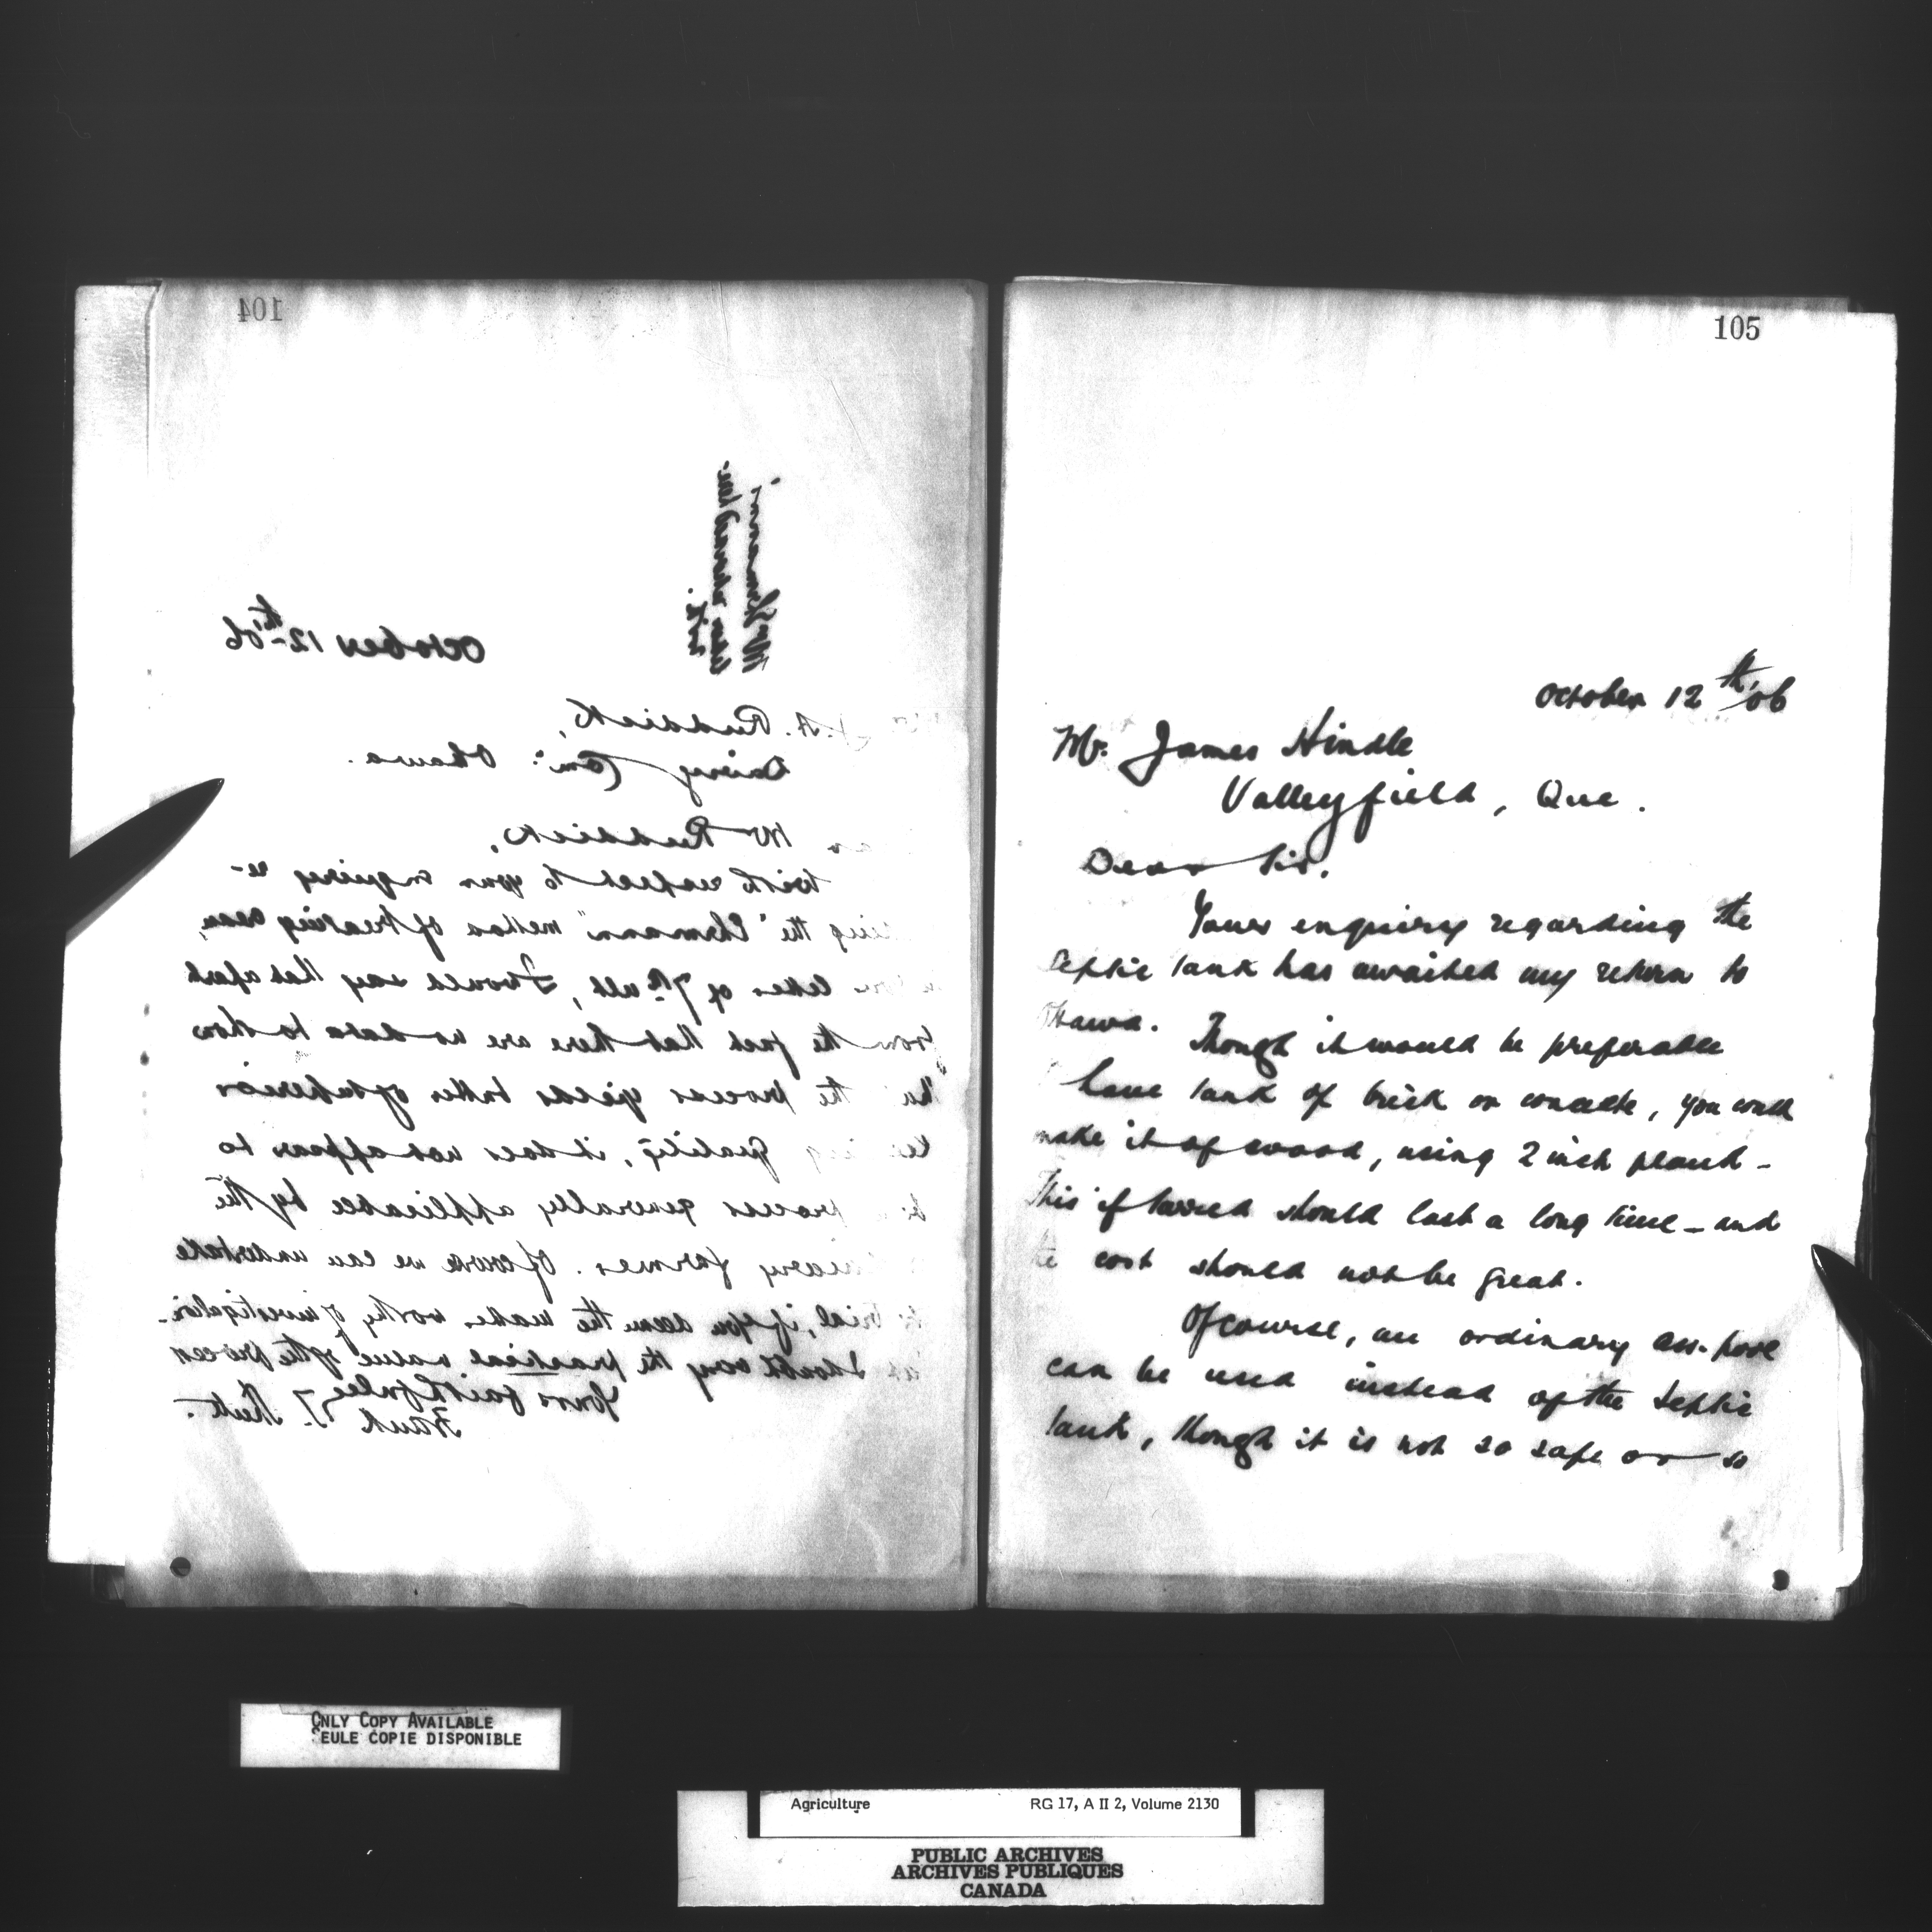 104
October 12th '06
J. A. Ruddick,
Dairy Com: Ottawa.
Mr Ruddick,
With respect to your enquiry re-
the "Ehrmann" method of treating
letter of 7th ult, I would say that apart
from the fact that there are no data to show
the process yields butter of superior
quality, it does not appear to
process generally applicable by the
farmer. Of course we can undertake
trial, if you deem the matter worthy of investigation.
I doubt very the practical value of the process
Yours faithfully
Frank T. Shutt.
105
October 12th '06
Mr. James Hindle
Valleyfield, Que.
Dear Sir,
Your enquiry regarding the
Septic tank has awaited my return to
Ottawa. Though it would be preferable
have tank of brick or concrete, you could
make it of wood, using 2 inch plank -
This if tarred should last a long time - and
the cost should not be great.
Of course, an ordinary cess-pool
can be used instead of the Septic
tank, though it is not so safe or so
ONLY COPY AVAILABLE
SEULE COPIE DISPONIBLE
Agriculture RG 17, A II 2, Volume 2130
PUBLIC ARCHIVES
ARCHIVES PUBLIQUES
CANADA